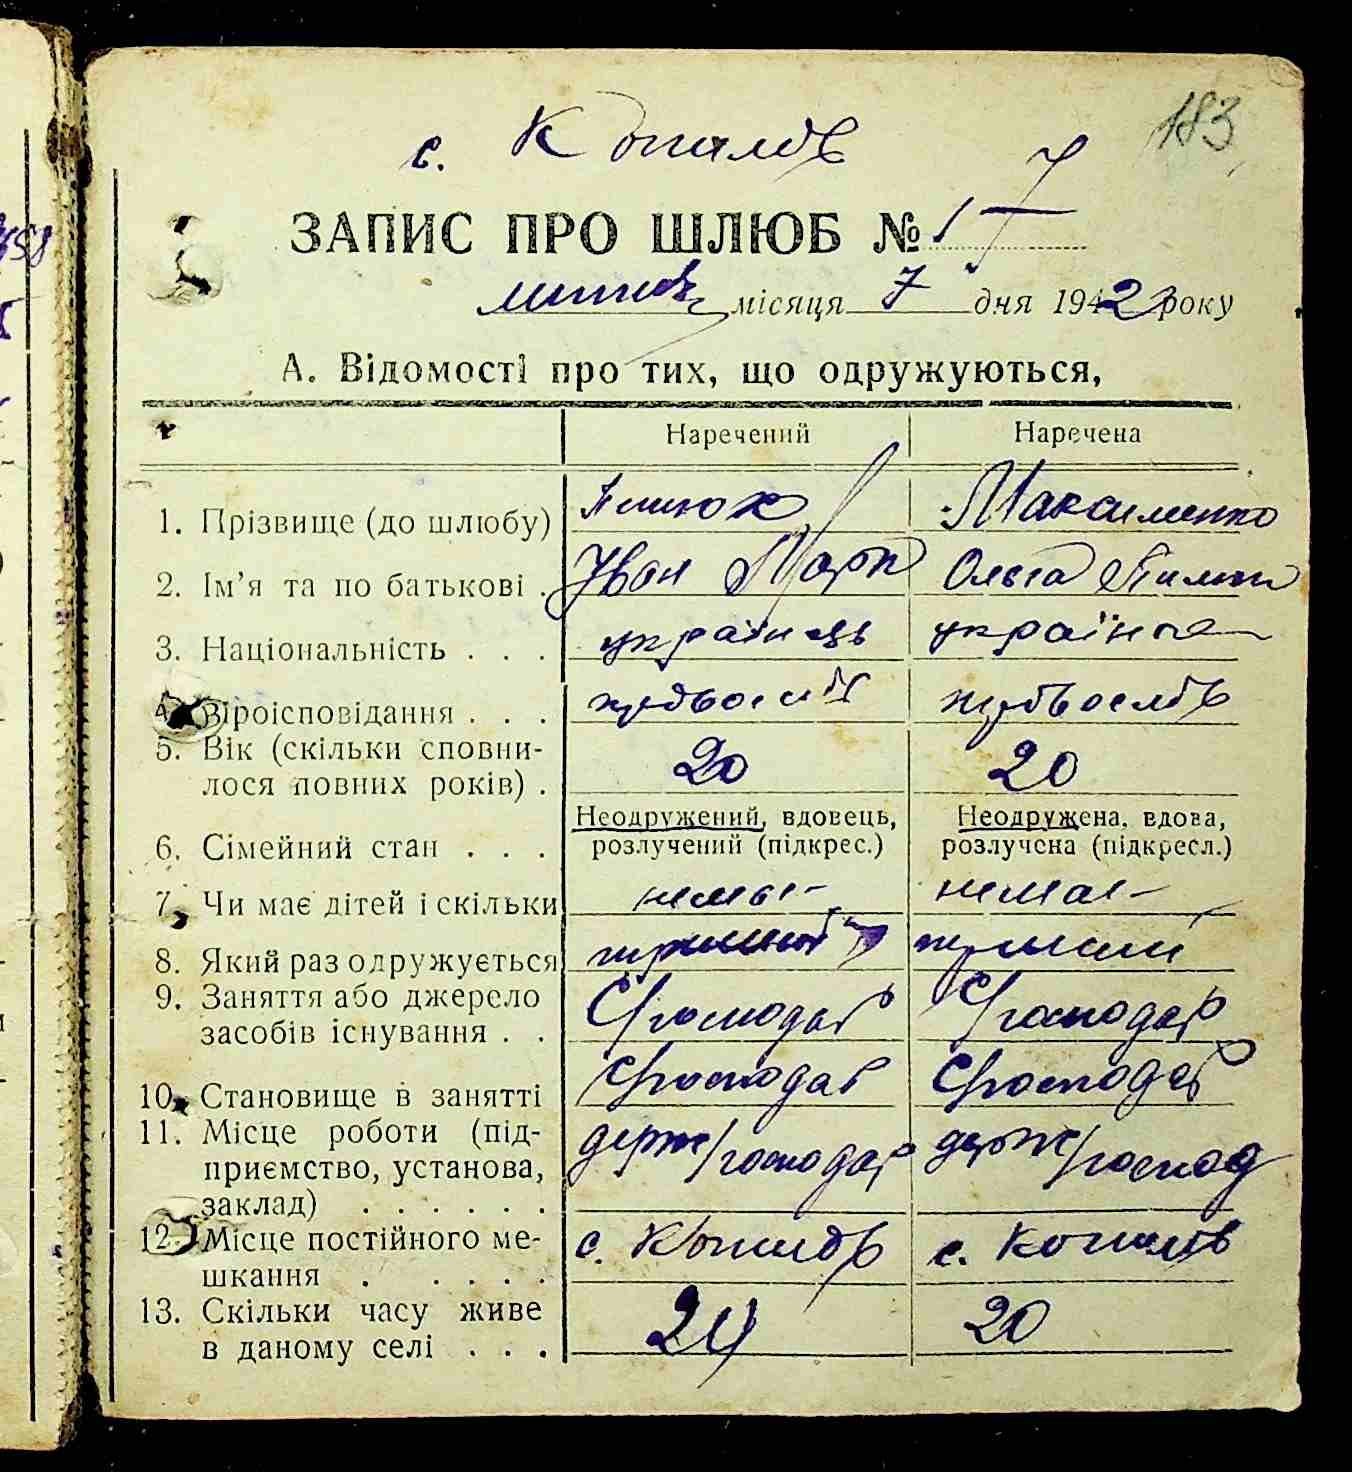 183
с. Копилов
ЗАПИС ПРО ШЛЮБ № 17
липня місяця 7 дня 1942 року
А. Відомості про тих, що одружуються,
Наречений Наречена
1. Прізвище (до шлюбу) Максименко
2. Ім’я та по батькові . Іван Марк Ольга Пилип
3. Національність . . . українець українка
4. Віроісповідання . . .
5. Вік (скільки сповни-
лося повних років) . 20 20
Неодружений, вдовець, Неодружена, вдова,
6. Сімейний стан . . . розлучений (підкрес.) розлучена (підкресл.)
7. Чи має дітей і скільки немає немає
8. Який раз одружується перший
9. Заняття або джерело
засобів існування . . Господар Господар
10. Становище в занятті Господар Господар
11. Місце роботи (під-
приємство, установа, держ/господар держ/господ
заклад) . . . . . .
12. Місце постійного ме- с. Копилов с. Копилов
шкання . . . . .
13. Скільки часу живе
в даному селі . . . 20